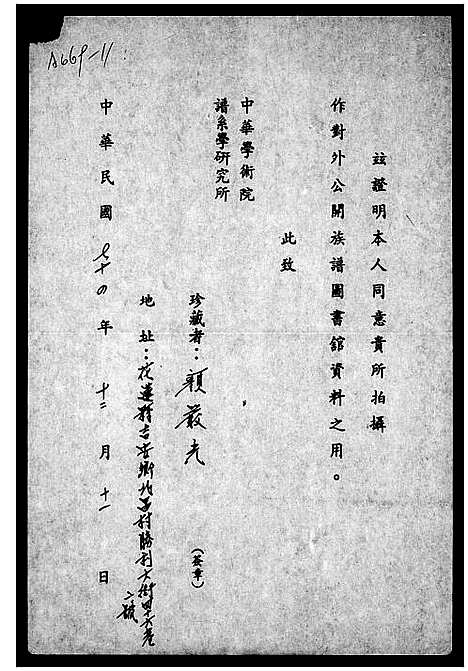 A669-11
茲證明本人同意貴所拍攝
作對外公開族譜圖書館資料之用。
此致
中華學術院
譜系學研究所
珍藏者：顏嚴光（簽章）
地址：花蓮縣吉安鄉北昌村勝利大街四十六巷
二號
中華民國七十四年十二月十一日